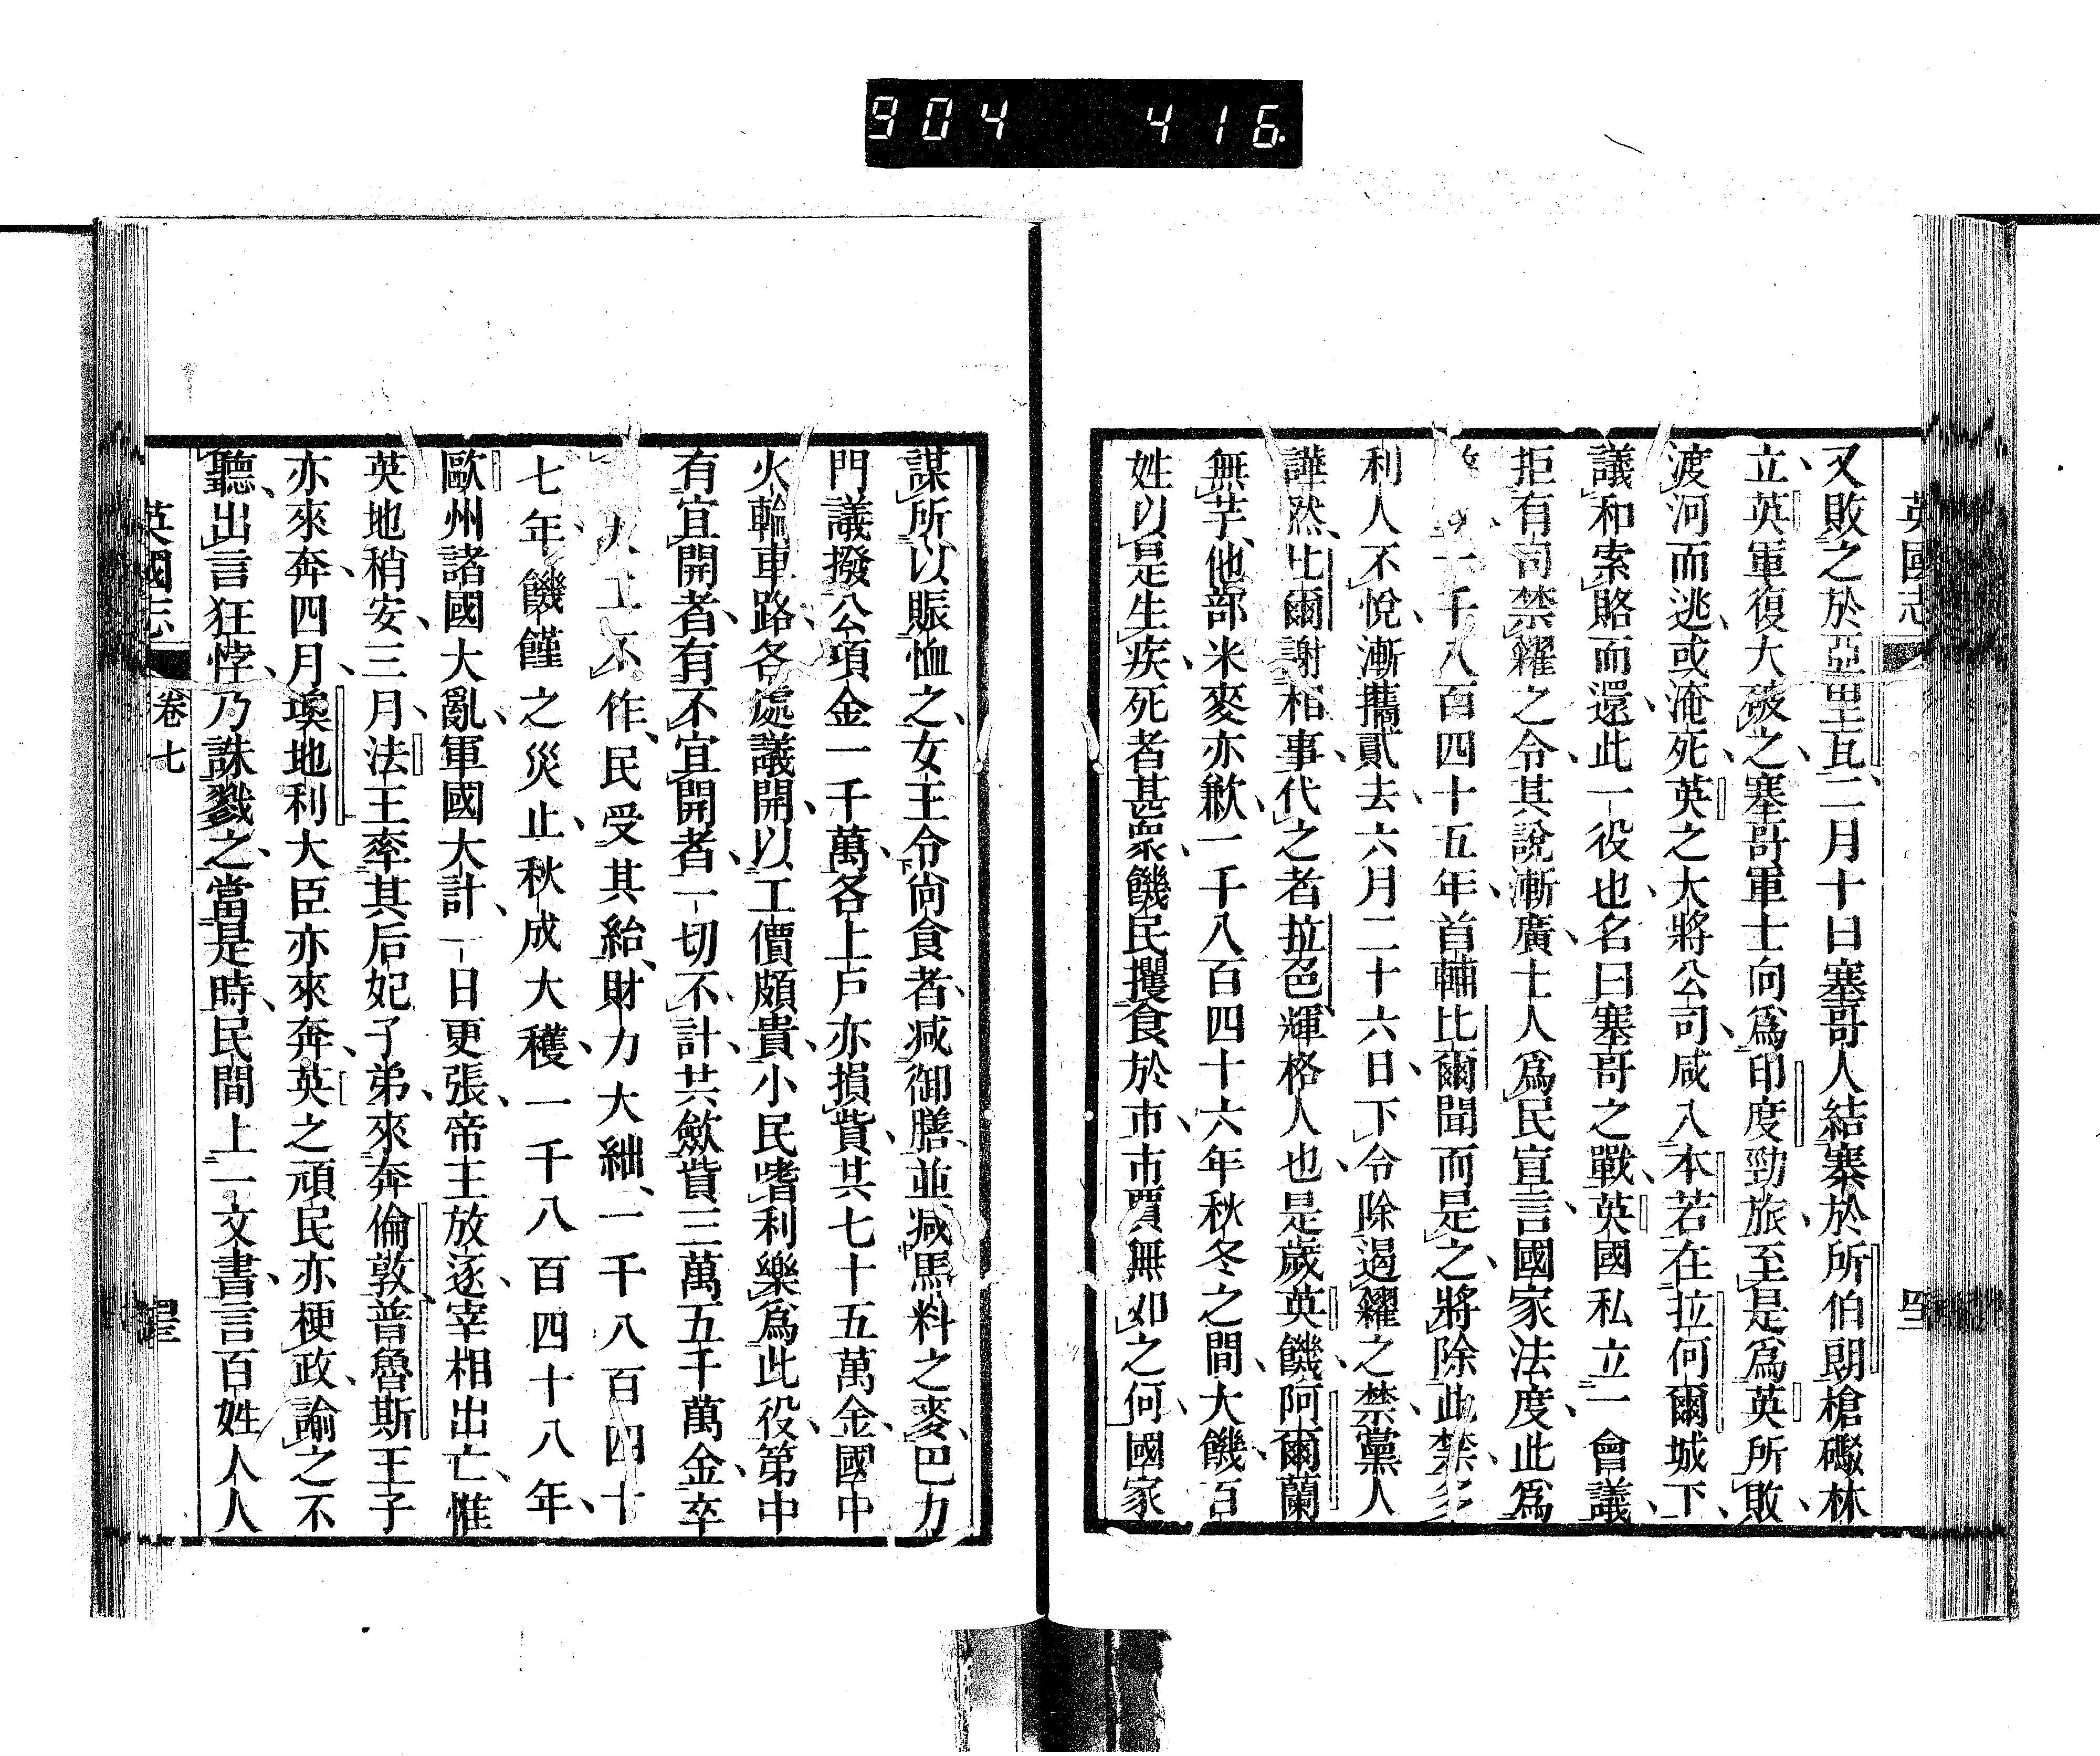 904 416
英國志
又敗之於亞里瓦二月十日塞哥人結寨於所伯朗槍礮林
立英軍復大破之塞哥軍士向爲印度勁旅至是爲英所敗
渡河而逃或淹死英之大將公司咸入本若在拉何爾城下
議和索賂而還此一役也名曰塞哥之戰英國私立一會議
拒有司禁糴之令其說漸廣士人爲民宣言國家法度此爲
一千八百四十五年首輔比爾聞而是之將除此禁多
利人不悅漸攜貳去六月二十六日下令除遏糴之禁黨人
譁然比爾謝柄事代之者拉色輝格人也是歲英饑阿爾蘭
無芋他部米麥亦歉一千八百四十六年秋冬之間大饑百
姓以是生疾死者甚衆饑民攫食於市市賈無如之何國家
謀所以賑恤之女王令尙食者减御膳並减馬料之麥巴力
門議撥公項金一千萬各上戸亦損貲共七十五萬金國中
火輪車路各處議開以工價頗貴小民嗜利樂爲此役第中
有宜開者有不宜開者一切不計共歛貲三萬五千萬金卒
人工不作民受其紿財力大絀一千八百四十
七年饑饉之災止秋成大穫一千八百四十八年
歐州諸國大亂軍國大計一日更張帝王放逐宰相出亡惟
英地稍安三月法王率其后妃子弟來奔倫敦普魯斯王子
亦來奔四月墺地利大臣亦來奔英之頑民亦梗政諭之不
聽出言狂悖乃誅戮之當是時民間上一文書言百姓人人
英國志 卷七